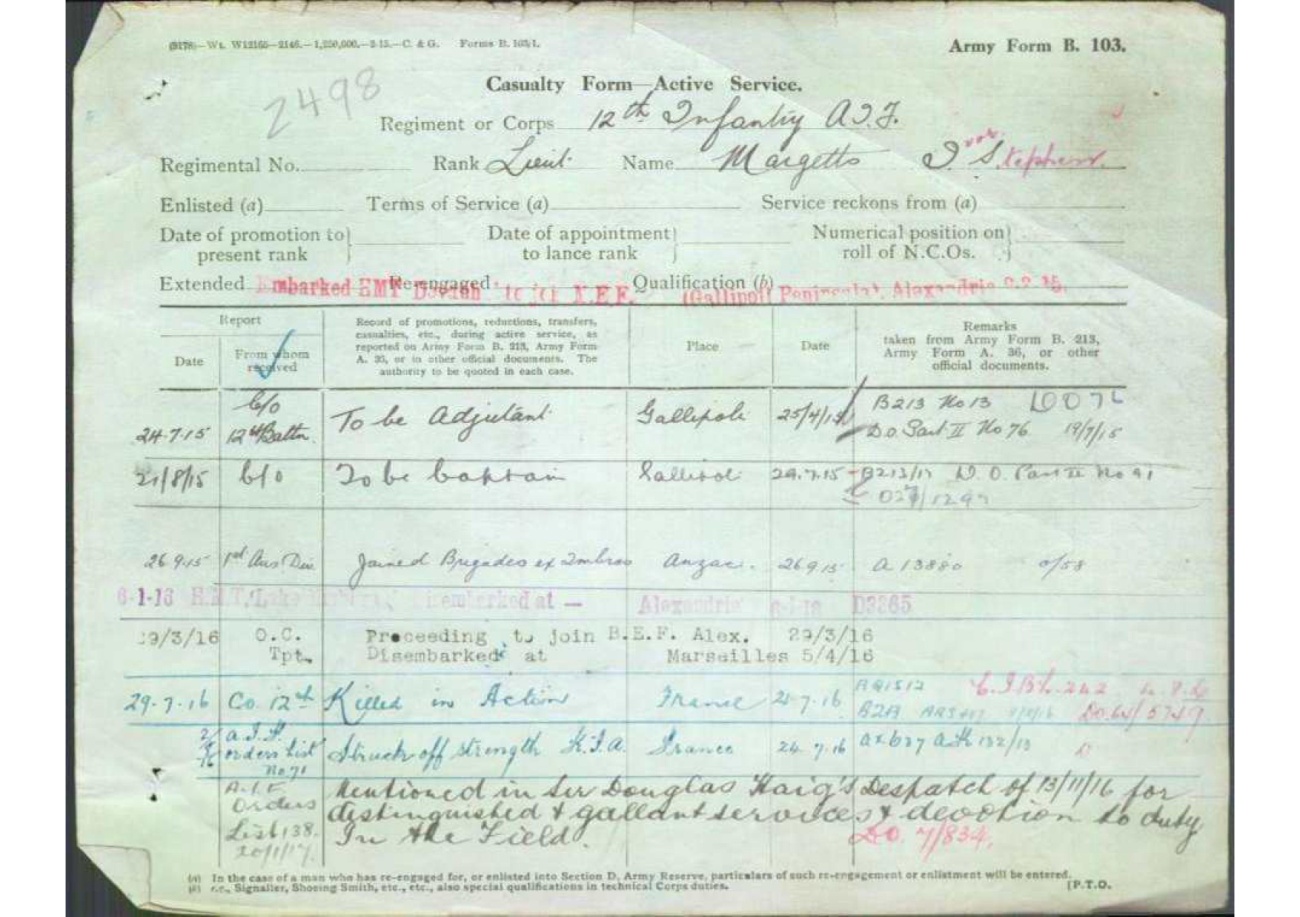 (9178)—Wt. W12165—2146.—1,250,000.—2-15.—C. & G. Forms B. 103/1.
Army Form B. 103.
2498
Casualty Form—Active Service.
Regiment or Corps 12th Infantry A.I.F.
Regimental No. Rank Lieut. Name Margetts I S.tephen
Enlisted (a) Terms of Service (a) Service reckons from (a)
Date of promotion to present rank } Date of appointment to lance rank } Numerical position on roll of N.C.Os. }
Extended Re-engaged Qualification (b)
Embarked to join M.E.F. (Gallipoli Peninsula), Alexandria
Report
Date
From whom received
Record of promotions, reductions, transfers,
casualties, etc., during active service, as
reported on Army Form B. 213, Army Form
A. 36, or in other official documents. The
authority to be quoted in each case.
Place
Date
Remarks
taken from Army Form B. 213,
Army Form A. 36, or other
official documents.
24.7.15 C/o 12th Battn. To be Adjutant Gallipoli 25/4/15 B213 No 13
D.O. Part II No 76 19/7/15
21/8/15 C/o To be Captain Gallipoli B213/17 D.O. Part II No 91
26.9.15 1st Aus Div Joined Brigades ex Imbros Anzac. 26.9.15 A 13880
6-1-16 H.M.T. Disembarked at — Alexandria D3265
29/3/16 O.C. Tpt. Proceeding to join B.E.F. Alex. 29/3/16
Disembarked at Marseilles 5/4/16
29.7.16 Co 12th Killed in Action France
A.I.F. orders list No. 71 Struck off strength K.I.A. France 24.7.16
A.I.F. Orders List 138. 20/1/17. Mentioned in Sir Douglas Haig's Despatch of 13/11/16 for
distinguished & gallant services & devotion to duty
In the Field. DO. 7/834.
(a) In the case of a man who has re-engaged for, or enlisted into Section D, Army Reserve, particulars of such re-engagement or enlistment will be entered.
(b) e.g., Signaller, Shoeing Smith, etc., etc., also special qualifications in technical Corps duties.
[P.T.O.